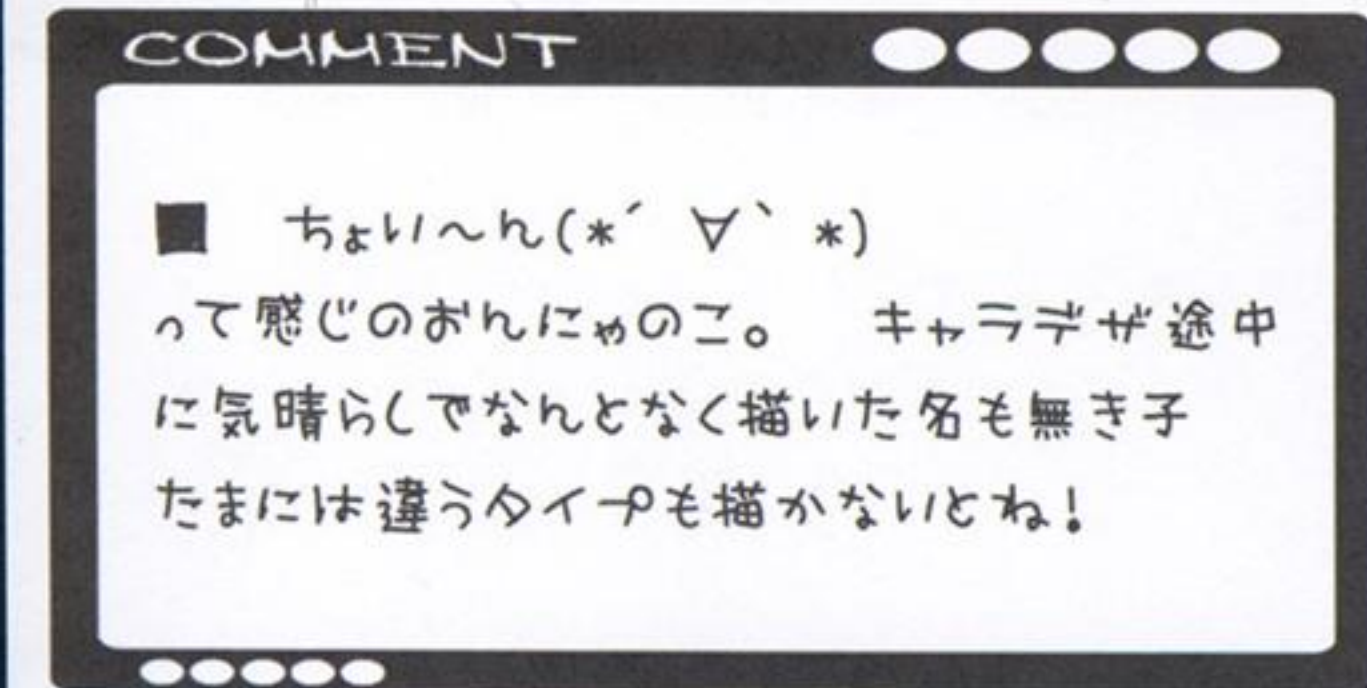 COMMENT
■ ちょい～ん(*´ ∀｀ *)
って感じのおんにゃのこ。 キャラデザ途中
に気晴らしでなんとなく描いた名も無き子
たまには違うタイプも描かないとね！